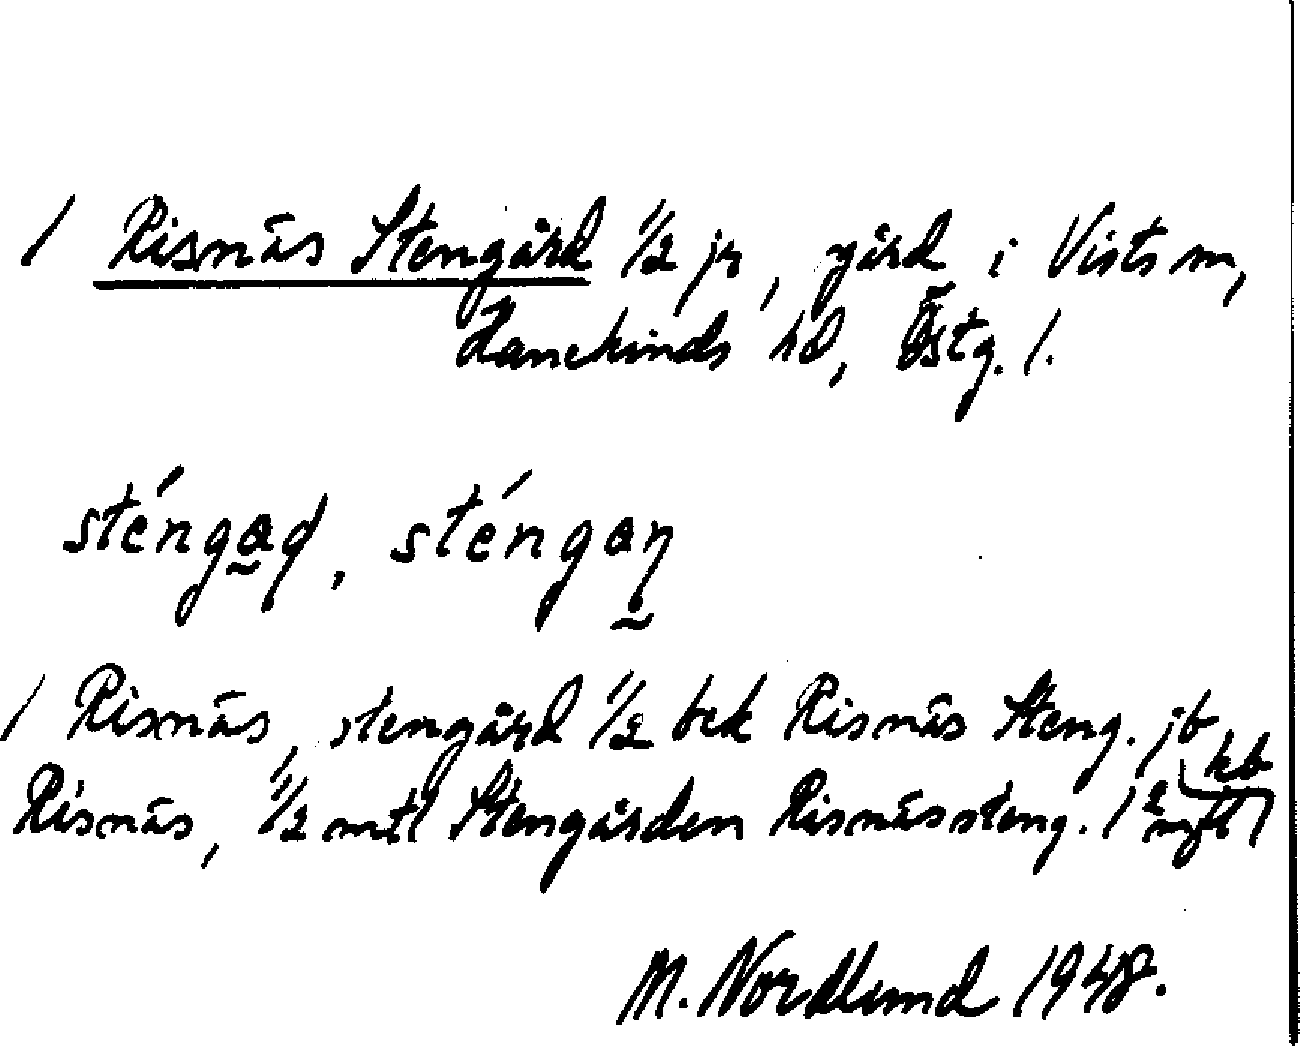 / Risnäs Stengård 1/2 jr, gård i Vists sn,
Hanekinds hd, Östg. l.
sténgad, sténgan
/ Risnäs, stengård 1/2 bek Risnäs Steng. jb
Risnäs, 1/2 mtl Stengården Risnässteng. kb
M. Nordlund 1948.